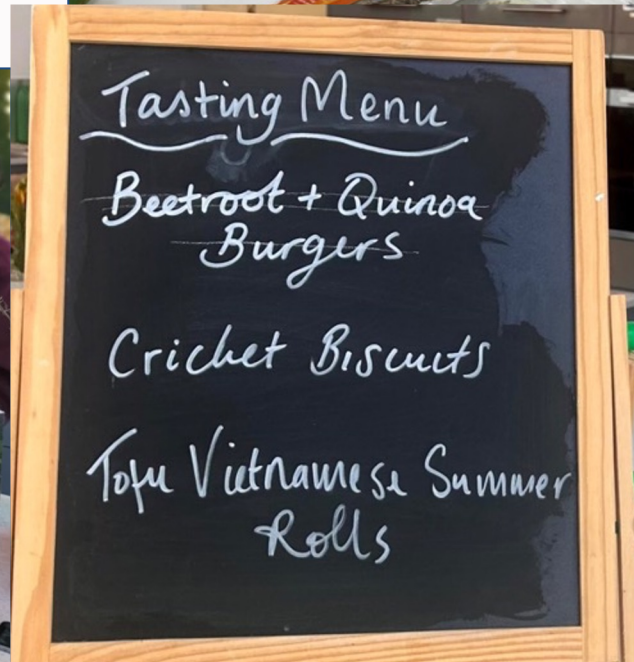 Tasting Menu
Beetroot + Quinoa
Burgers
Cricket Biscuits
Tofu Vietnamese Summer
Rolls